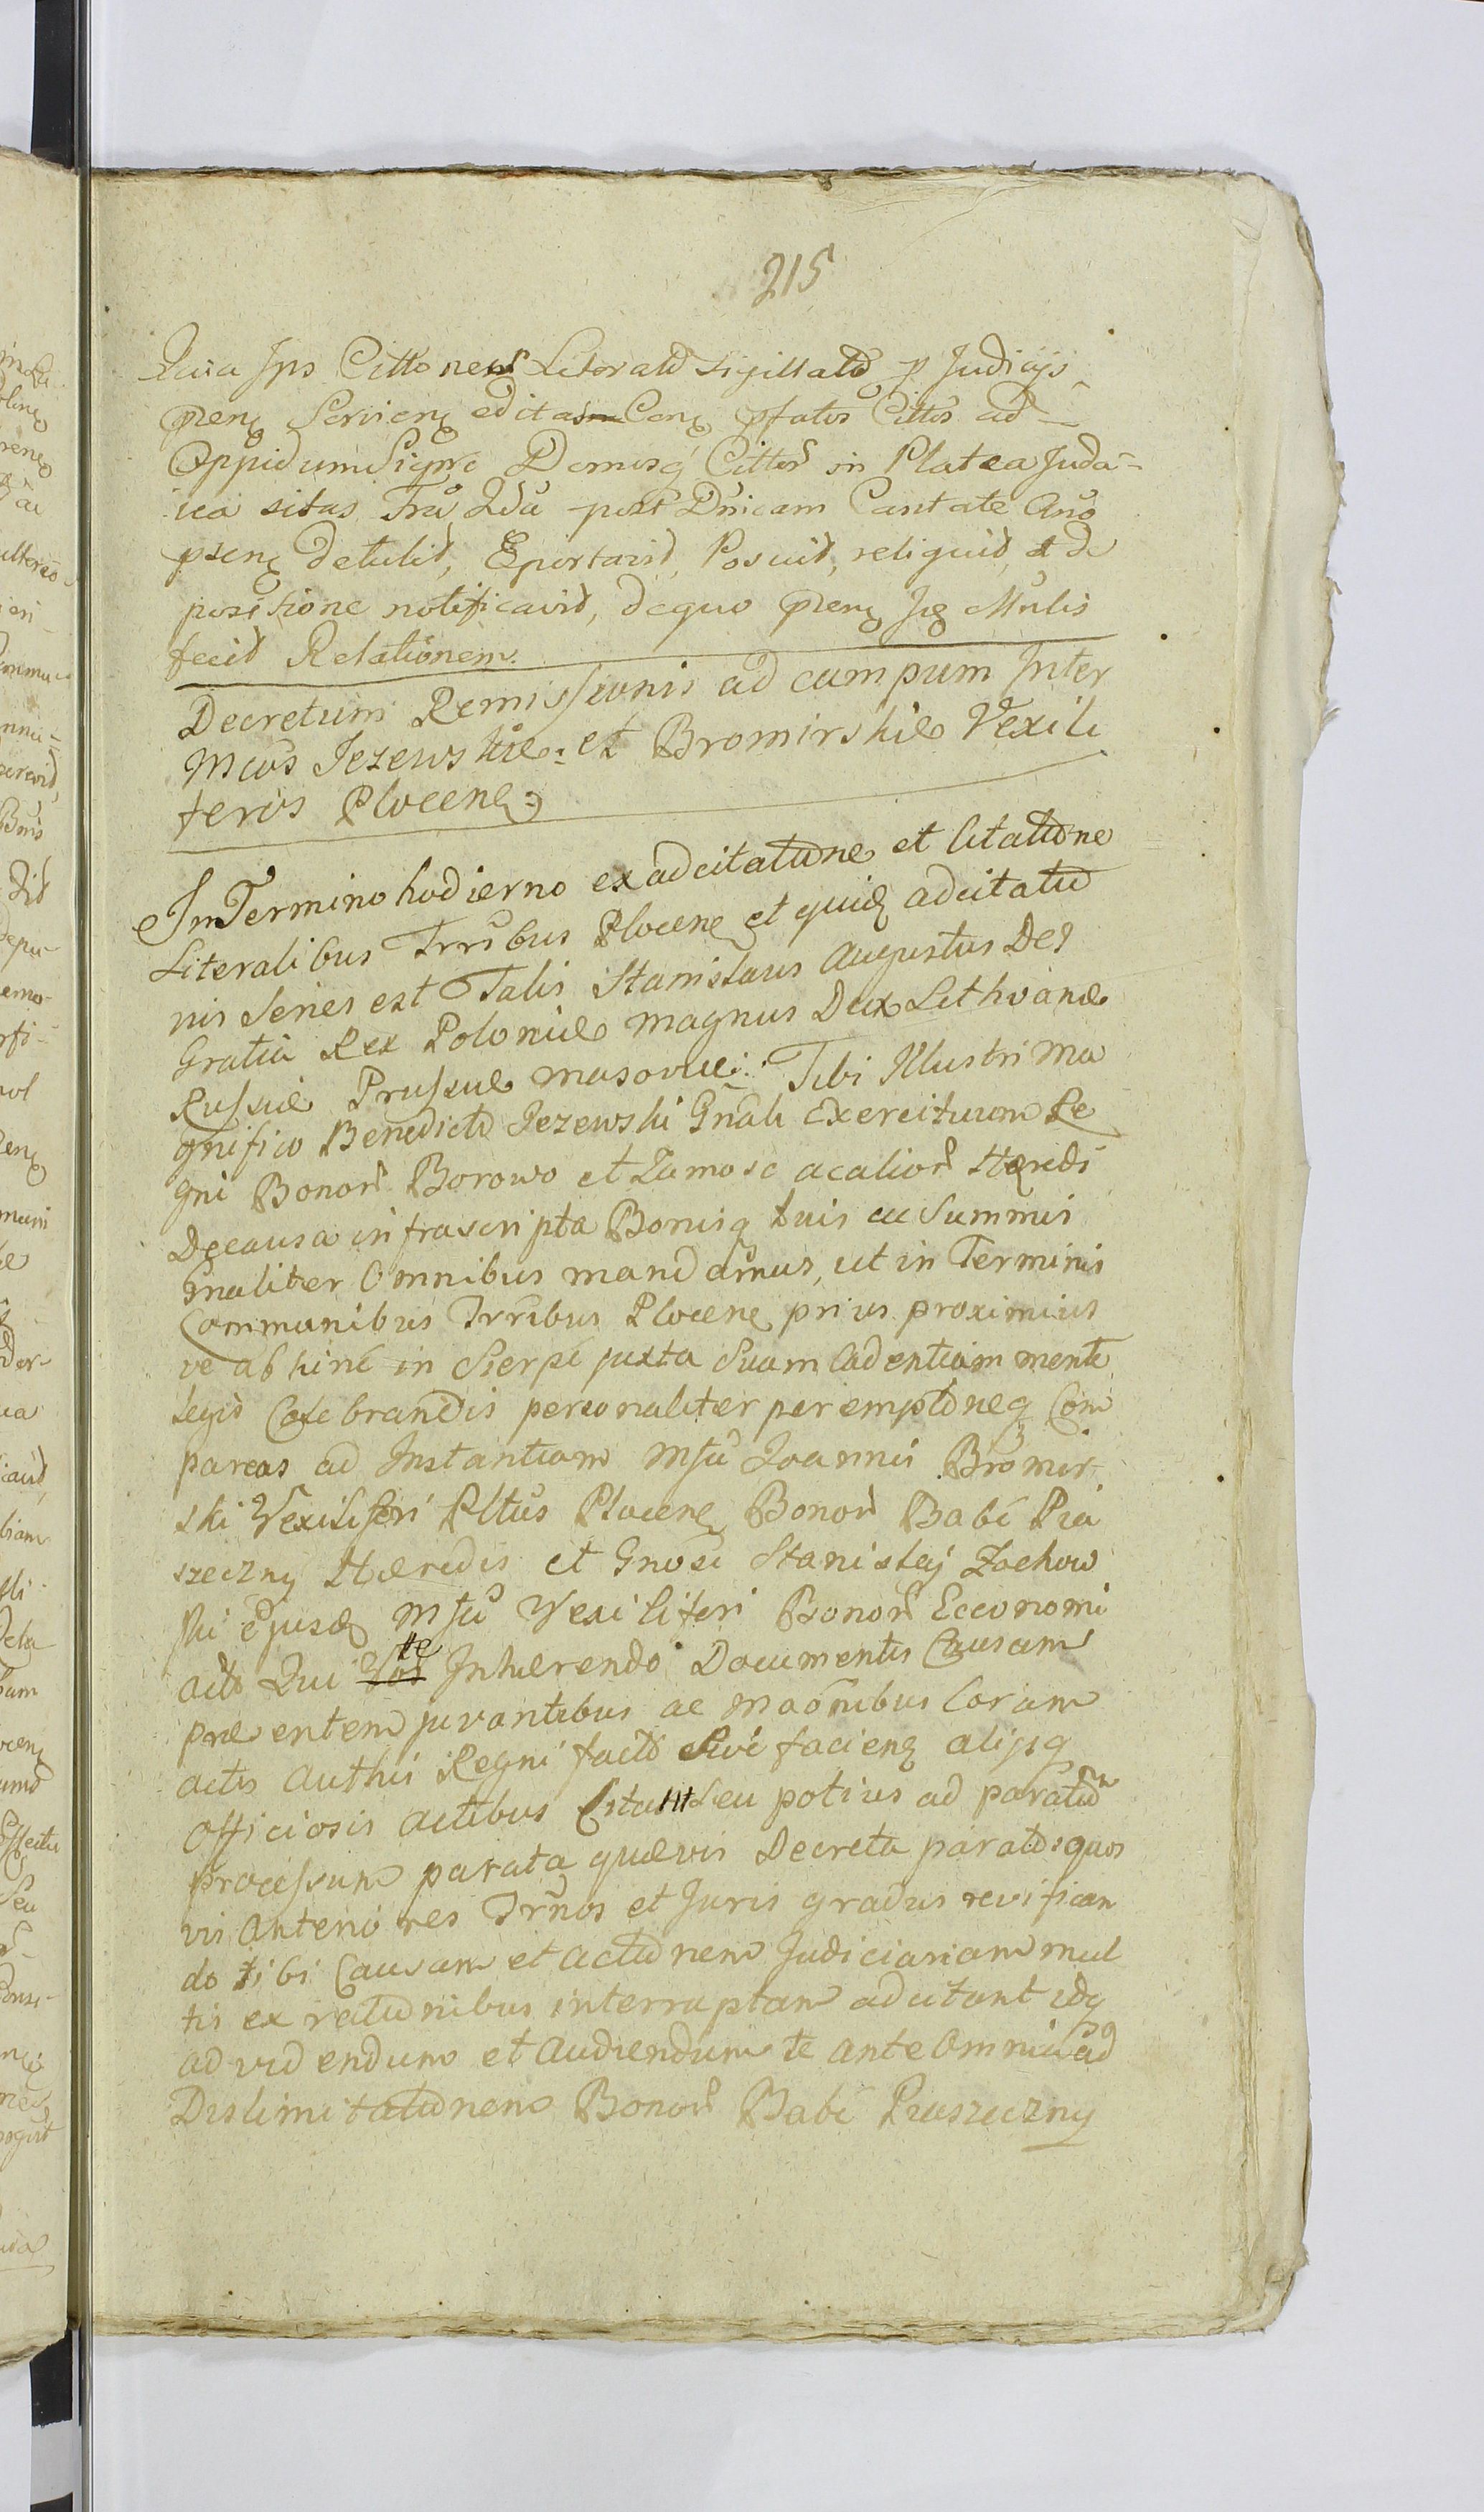 215
Quia Ips Cittonem Literald sigillatd p Judicijs
pren Servien edita Con pfatos Cittos ad
Oppidum Sierpc Domosq Cittor in Platea Juda-
ica sitas Fria 2da post Dnicam Cantate Ano
psen detulid, Eportavid, Posuid, reliquid, et de
positione notificavid, dequo pren Jge Mnlis
fecid Relationem.
Decretum Remissionis ad campum Inter
Mcos Jezewskie et Bromirskie Vexili
feros Plocens
In Termino hodierno ex adcitatione et Citatione
Literalibus Trribus Plocen et quid adcitatio
nis Series est Talis Stanislaus Augustus Dei
Gratia Rex Poloniæ magnus Dux Lithvaniæ
Russiæ Prussiæ masoviæ: Tibi Illustri Ma
gnifico Benedicto Jezewski Gnali Exercituum Re
gni Bonorum Borowo et Zamosc ac alior Hæredi
De causa infrascripta Bonisq tuis ac Summis
Gnaliter Omnibus mandamus, ut in Terminis
Communibus Trribus Plocen prius proximius
ve ab hinc in Sierpc juxta Suam Cadentiam mente
Legis Celebrandis personaliter peremptoneq Com
pareas ad Instantiam Msti Joannis Bromir
ski Vexiliferi Pltus Plocen Bonor Babi Pia
szeczny Hæredis et Gnosi Stanislaj Zochow
ski ejusd Msti Vexiliferi Bonor Economi
acto Qui te Inhærendo Documentis Causam
præsentem juvantibus ac Maonibus Coram
actis Authis Regni facto sive facien alijsq
Officiosis actibus Citant Seu potius ad paratum
Processum parata quævis Decreta paratosquos
vis Anteriores Trnos et Juris gradus revifican
do tibi Causam et actionem Judiciariam mul
tis ex rationibus interruptam adcitant idq
ad videndum et Audiendum te ante Omnia ad
Dislimitationem Bonor Babi Piaszeczny